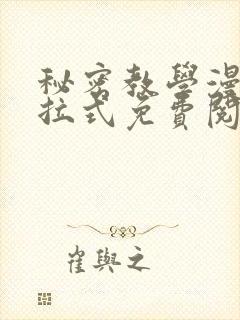 秘密教學漫
拉式免費閱
崔與之